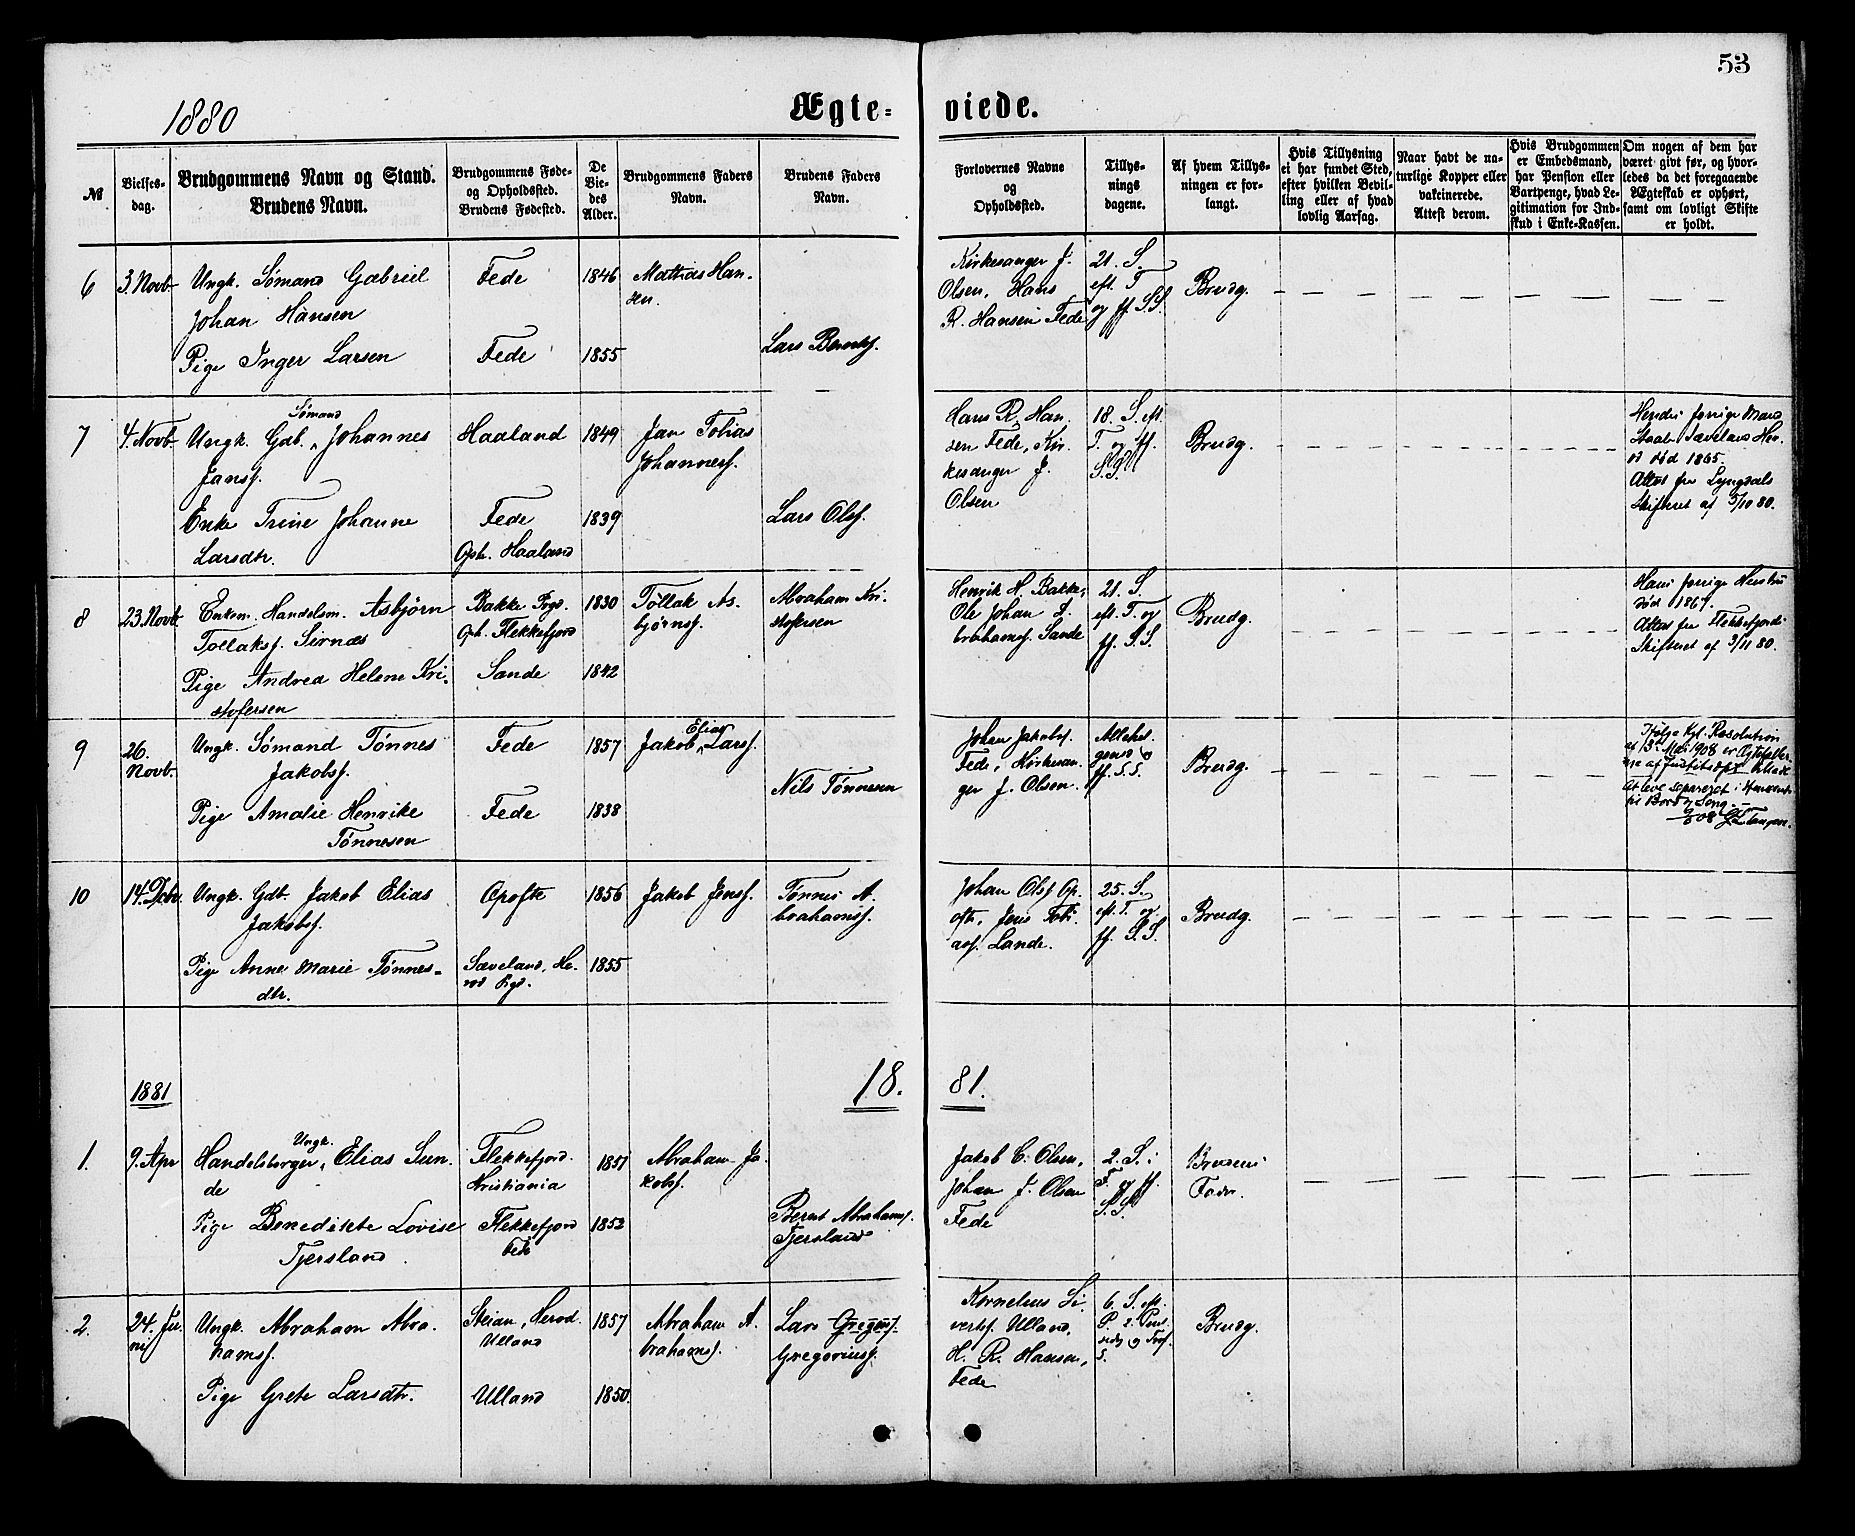 53
1880
Ægte-viede.
№
Vielses-dag.
Brudgommens Navn og Stand.
Brudens Navn.
Brudgommens Føde-
og Opholdssted.
Brudens Fødested.
De
Vie-
des
Alder.
Brudgommens Faders
Navn.
Brudens Faders
Navn.
Forlovernes Navne
og
Opholdssted.
Tillys-
nings
dagene.
Af hvem Tillys-
ningen er for-
langt.
Hvis Tillysning
ei har fundet Sted,
efter hvilken Bevil-
ling eller af hvad
lovlig Aarsag.
Naar havt de na-
turlige Kopper eller
vakcinerede.
Attest derom.
Hvis Brudgommen
er Embedsmand,
har Pension eller
Vartpenge, hvad Le-
gitimation for Ind-
skud i Enke-Kassen.
Om nogen af dem har
været givt før, og hvor-
ledes da det foregaaende
Ægteskab er ophørt,
samt om lovligt Skifte
er holdt.
6
3. Novb.
Ungk. Sømand Gabriel
Johan Hansen
Pige Inger Larsen
Fede
Fede
1846
1855
Mathias Han-
sen.
Lars Berntsf.
Kirkesanger J.
Olsen, Hans
R. Hansen Fede
21. S.
eft. T
og ff. S.S.
Brudg.
7
4. Novb.
Sømand
Ungk. Gdb. Johannes
Jansf.
Enke Trine Johanne
Larsdtr.
Haaland
Fede
Oph. Haaland
1849
1839
Jan Tobias
Johannesf.
Lars Olsf.
Hans R. Han-
sen Fede, Kir-
kesanger J.
Olsen
18. S. eft.
T. og ff.
S.S.
Brudg.
Hendes forrige Mand
Sævland He-
død 1865.
Attest fra Lyngdals
Skifteret af 5/10 80.
8
23. Novb.
Enkem. Handelsm. Asbjørn
Tollaksf. Sirnæs
Pige Andrea Helene Kri-
stofersen
Bakke Pgd.
Oph. Flekkefjord
Sande
1830
1842
Tollak As-
bjørnsf.
Abraham Kri-
stofersen
Henrik H. Bakke,
Ole Johan A-
brahamsf. Sande
21. S.
eft. T. og
ff. S.S.
Brudg.
Hans forrige Hustru
død 1867.
Attest fra Flekkefjords
Skifteret af 3/11 80.
9
26.
Novb.
Ungk. Sømand Tønnes
Jakobsf.
Pige Amalie Henrike
Tønnesen
Fede
Fede
1857
1838
Elias
Jakob Larsf.
Nils Tønnesen
Johan Jakobsf.
Fede, Kirkesan-
ger J. Olsen.
Allehel-
gensd og
ff. S.S.
Brudg.
Ifølge Kgl. Resolution
af 13. Mai 1908 er Ægtefolke-
ne af Justitsdept
at leve separeret i Henseende
til Bord og Seng.
10
14. Dcbr.
Ungk. Gdb. Jakob Elias
Jakobsf.
Pige Anne Marie Tønnes-
dtr.
Opofte
Sæveland, He-
rod Pgd.
1856
1855
Jakob Jensf.
Tønnes A-
brahamsf.
Johan Olsf Op-
ofte, Jens Tobi-
asf. Lande.
25. S.
eft. T. og
ff. S.S.
Brudg.
1881
18.81.
1.
9. Apr
Ungk.
Handelsborger, Elias Sun-
de
Pige Benedikte Lovise
Tjersland
Flekkefjord.
Kristiania
Flekkefjord
Fede
1851
1852
Abraham Ja-
kobsf.
Berent Abrahamsf.
Tjersland
Jakob C. Olsen,
Johan J. Olsen
Fede
2. S. i
F. og ff.
S.S.
Brudens
Fader.
2.
24. Ju-
ni
Ungk. Abraham Abra-
hamsf.
Pige Grete Larsdtr.
Steian, Herod.
Ulland
Ulland
1857
1850.
Abraham A-
brahamsf.
Lars Gregersf.
Gregoriusf.
Kornelius Si-
vertsf. Ulland,
H. R. Hansen,
Fede
6. S. eft.
P. 2. Pint-
sedag og Tref.
S.
Brudg.